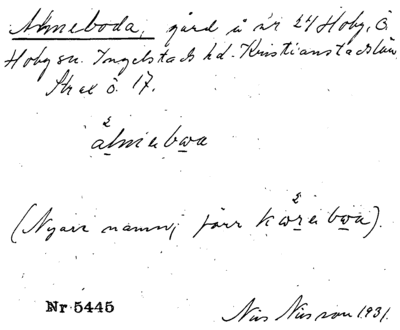 Almeboda, gård å nr 24 Hoby, Ö.
Hoby sn. Ingelstads hd. Kristianstads län,
Str ax ö. 17.
2
almebwa
2
(Nyare namn; förr kwrebwa).
Nr 5445 Nils Nilsson 1931.